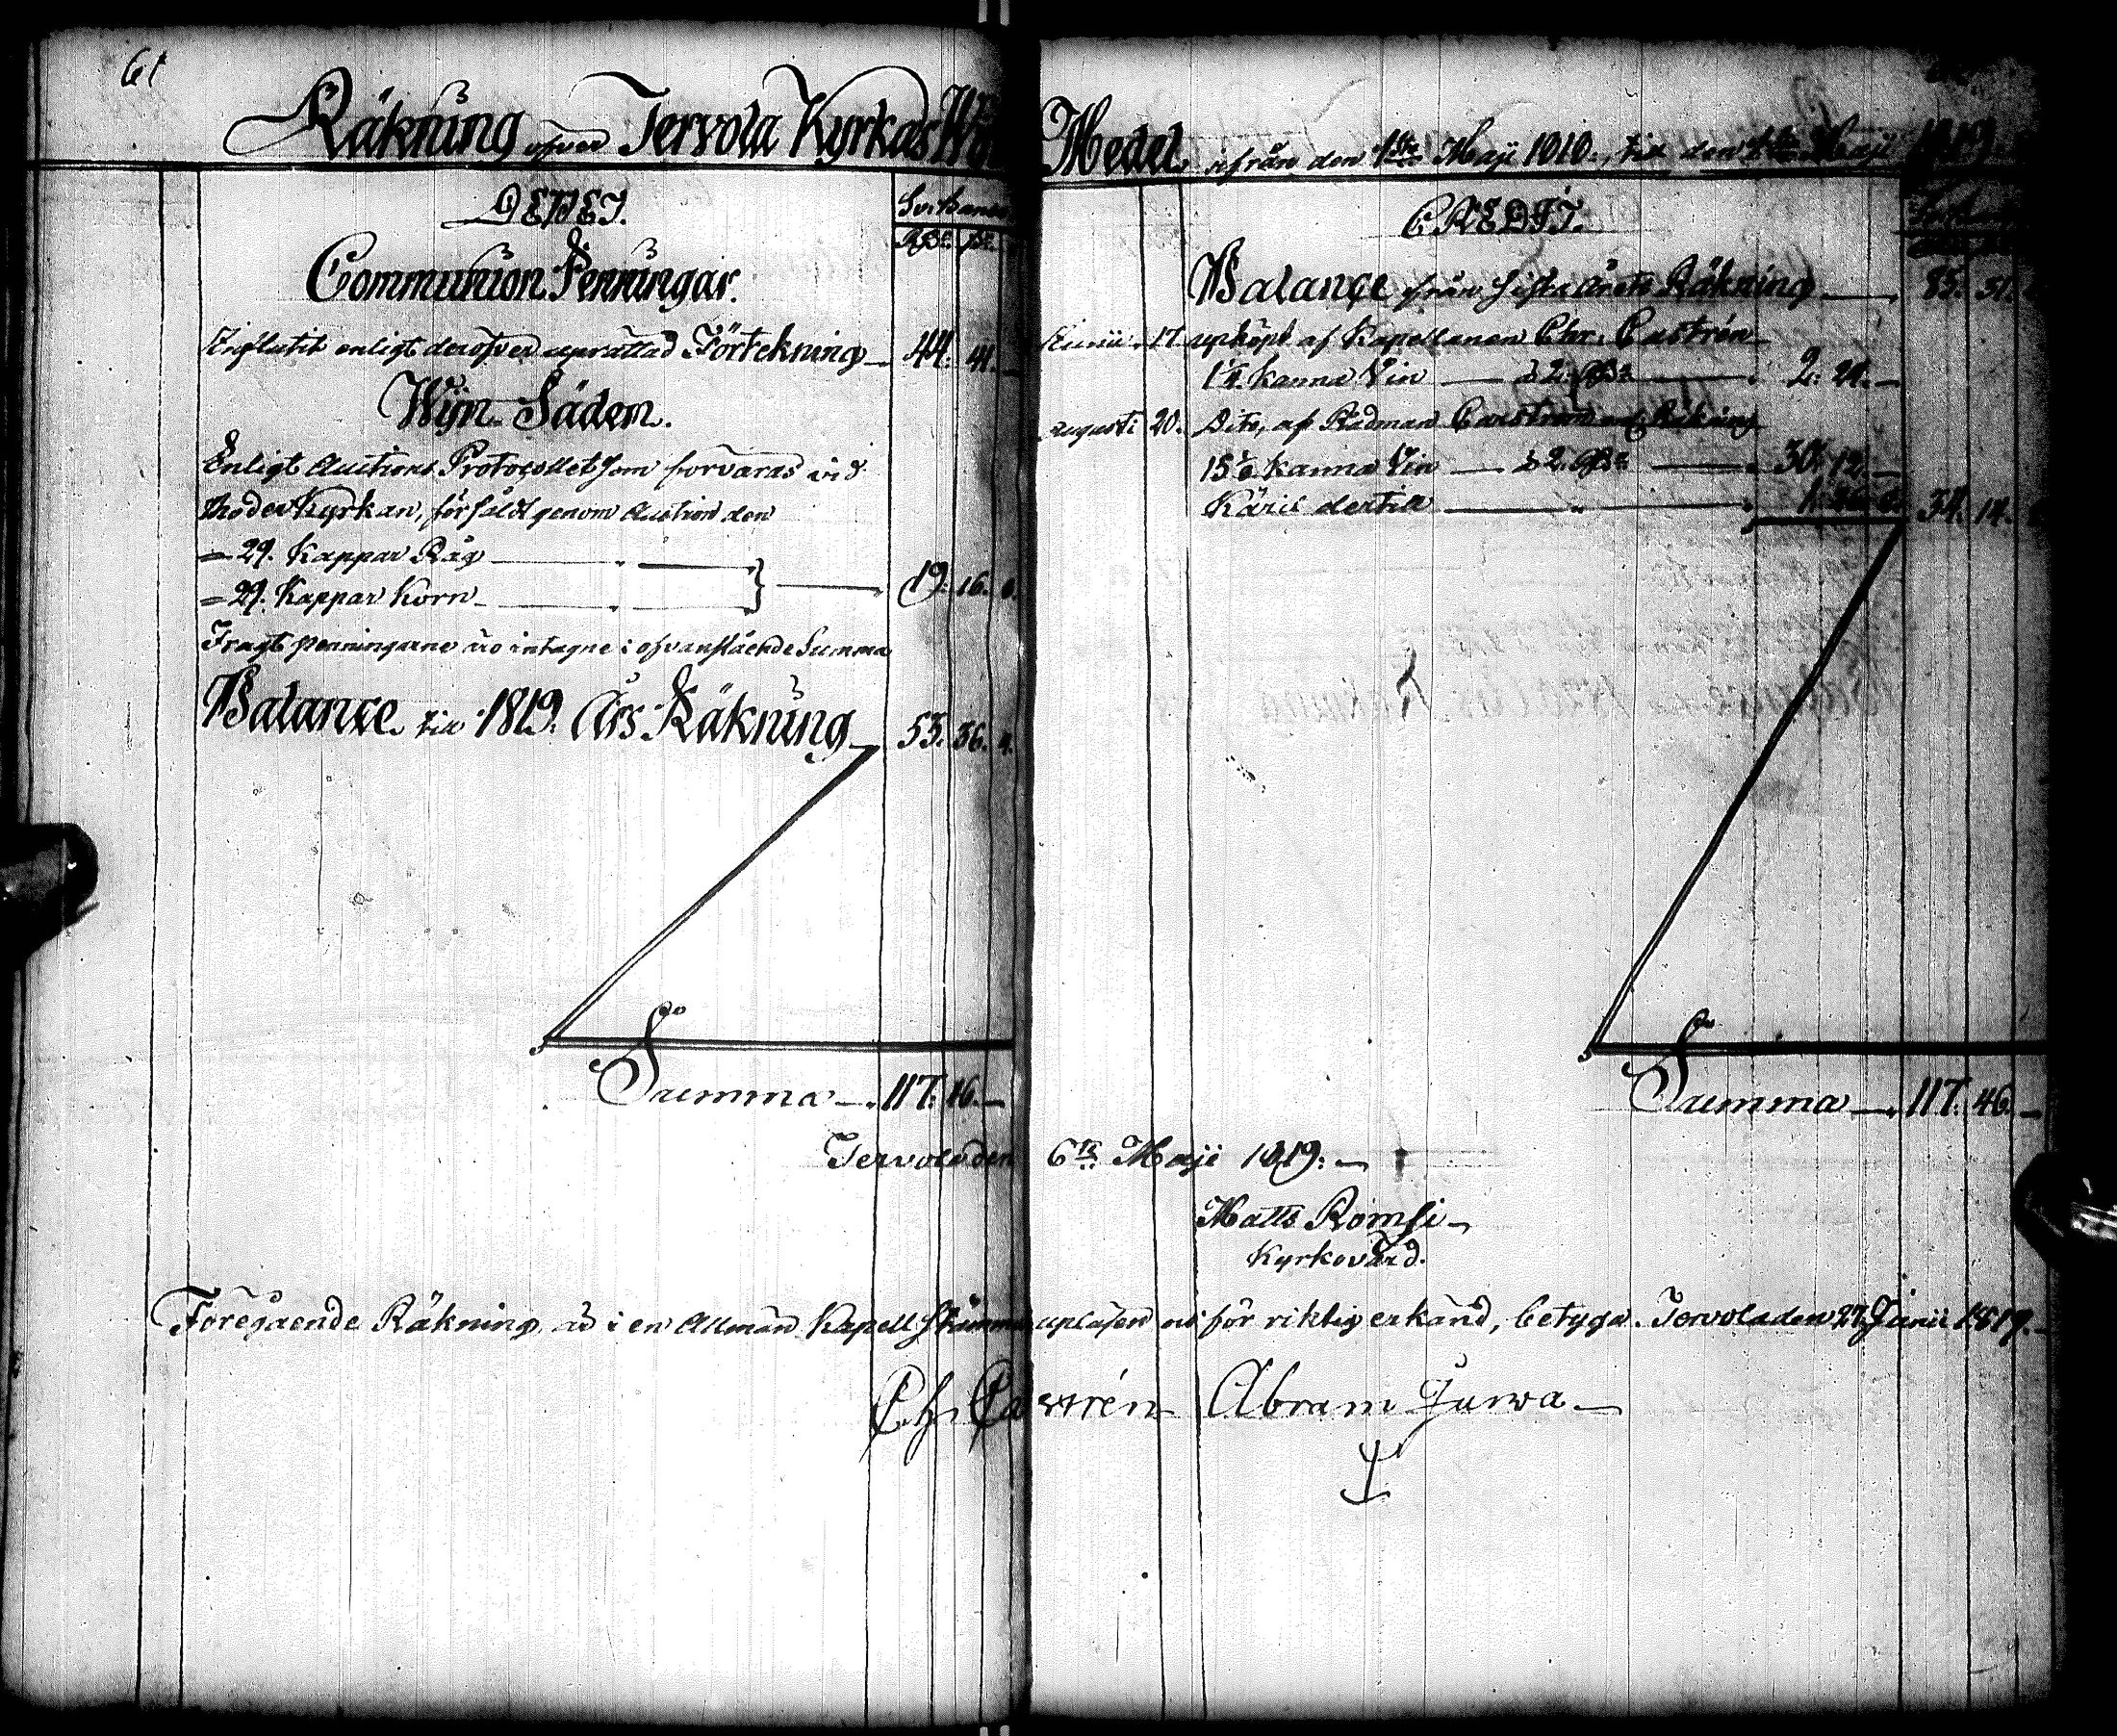 61
Räkning öfver Tervola Kyrkas
DEBET.
Sv. Banco
Rdr s.
Communion Penningar.
Influtit enligt deröfver uprättad Förtekning 44. 41. —
Wijn-Säden.
Enligt Auctions Protocollet som förvaras vid
Moder Kyrkan, försåldt genom Auction den
= 29. Kappar Råg
= 29. Kappar Korn 19. 16.
Fragt penningarne äro intagne i ofvanstående Summa
Balance till 1819. Års Räkning 53. 36.
Summa 117. 46. —
Medel ifrån den 1sta Maji 1818. till den 1sta Maji 1819
CREDIT.
Balance från sista Årets Räkning 85. 31.
Junii 17. upköpt af Kapellanen Chr. Castrén
1¼ Kanna Vin — à 2. Rdr — 2. 24. —
Augusti 20. Dito, af Rådman Räkning
15⅛ Kanna Vin — à 2. Rdr — 30. 12. —
Käril dertill 34. 14.
Summa 117. 46. —
Tervola den 6te Maji 1819. —
Matts Romsi
Kyrkovärd.
Föregående Räkning är i en Allmän Kapell Stämma upläsen och för riktig erkänd, betyga. Tervola den 27. Junii 1819.
Ch. Castrén Abram Jurva